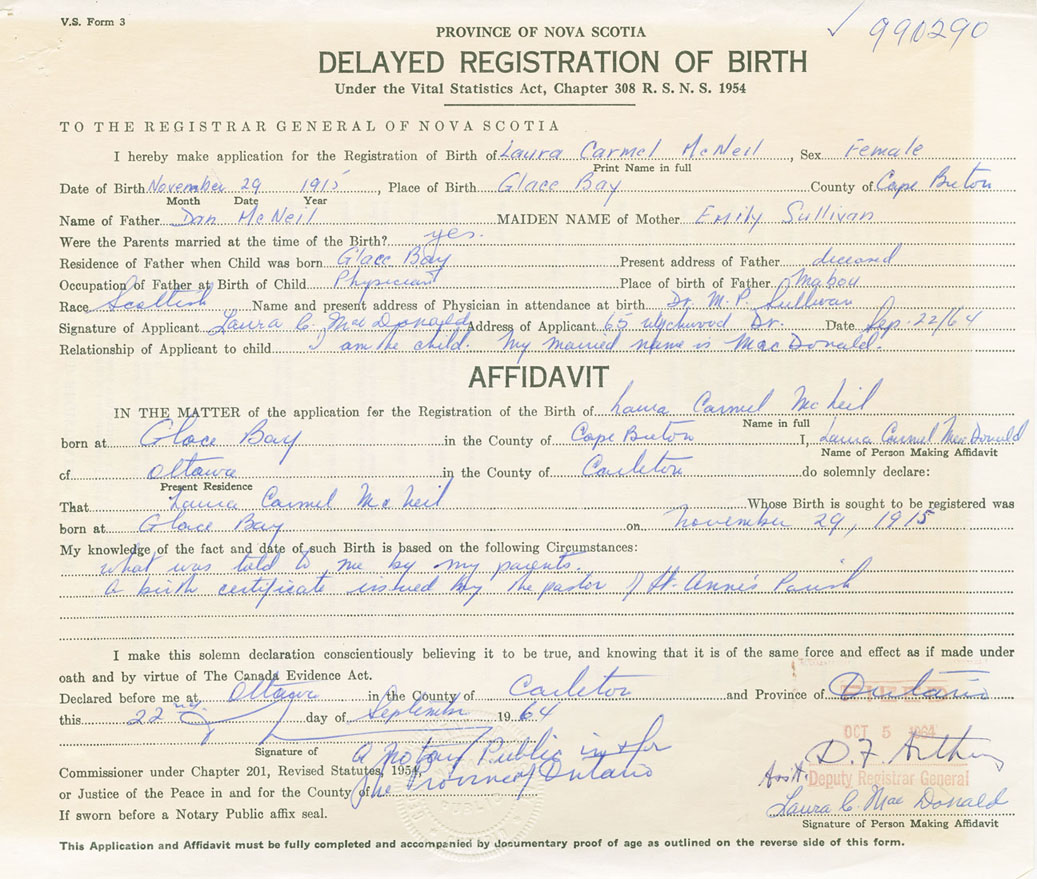 V.S. Form 3
✓ 990290
PROVINCE OF NOVA SCOTIA
DELAYED REGISTRATION OF BIRTH
Under the Vital Statistics Act, Chapter 308 R. S. N. S. 1954
TO THE REGISTRAR GENERAL OF NOVA SCOTIA
I hereby make application for the Registration of Birth of Laura Carmel McNeil, Sex Female
Print Name in full
Date of Birth November 29 1915, Place of Birth Glace Bay County of Cape Breton
Month Date Year
Name of Father Dan McNeil MAIDEN NAME of Mother Emily Sullivan
Were the Parents married at the time of the Birth? yes.
Residence of Father when Child was born Glace Bay Present address of Father deceased
Occupation of Father at Birth of Child Physician Place of birth of Father Mabou
Race Scottish Name and present address of Physician in attendance at birth Dr. M. P. Sullivan
Signature of Applicant Laura C. MacDonald Address of Applicant 65 Wychwood Dr. Date Sep. 22/64
Relationship of Applicant to child I am the child. My married name is MacDonald.
AFFIDAVIT
IN THE MATTER of the application for the Registration of the Birth of Laura Carmel McNeil
Name in full
born at Glace Bay in the County of Cape Breton I, Laura Carmel MacDonald
Name of Person Making Affidavit
of Ottawa in the County of Carleton do solemnly declare:
Present Residence
That Laura Carmel McNeil Whose Birth is sought to be registered was
born at Glace Bay on November 29, 1915
My knowledge of the fact and date of such Birth is based on the following Circumstances:
what was told to me by my parents.
A birth certificate issued by the pastor of St. Anne's Parish
I make this solemn declaration conscientiously believing it to be true, and knowing that it is of the same force and effect as if made under
oath and by virtue of The Canada Evidence Act.
Declared before me at Ottawa in the County of Carleton and Province of Ontario
FILED
this 22nd day of September 1964
OCT 5 1964
Signature of A Notary Public in & for
D. F. Arthur
Commissioner under Chapter 201, Revised Statutes, 1954, the Province of Ontario
Ass't. Deputy Registrar General
or Justice of the Peace in and for the County of
Laura C. MacDonald
If sworn before a Notary Public affix seal.
Signature of Person Making Affidavit
This Application and Affidavit must be fully completed and accompanied by documentary proof of age as outlined on the reverse side of this form.